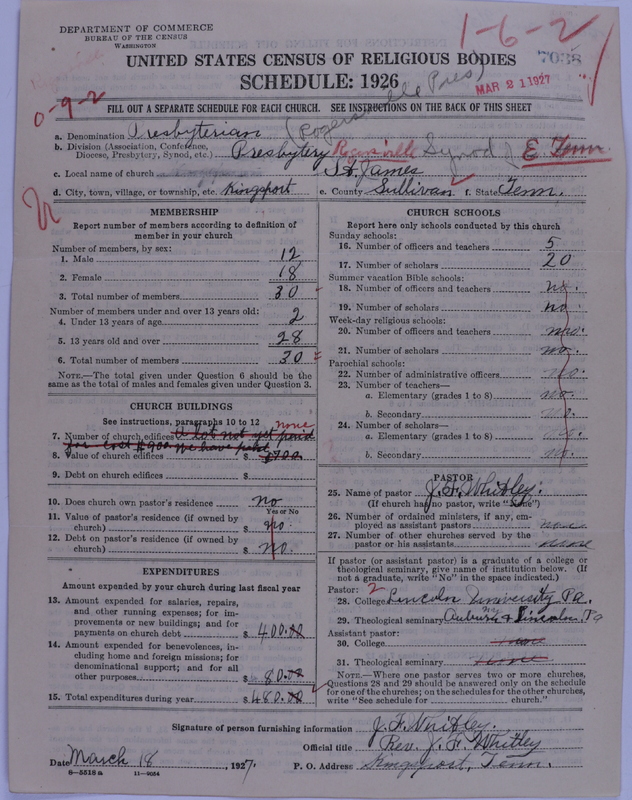 DEPARTMENT OF COMMERCE
BUREAU OF THE CENSUS
WASHINGTON
1-6-2
7038
UNITED STATES CENSUS OF RELIGIOUS BODIES
SCHEDULE: 1926
MAR 21 1927
0-9-2
FILL OUT A SEPARATE SCHEDULE FOR EACH CHURCH. SEE INSTRUCTIONS ON THE BACK OF THIS SHEET
a. Denomination Presbyterian (Rogersville Pres)
b. Division (Association, Conference, Diocese, Presbytery, Synod, etc.) Presbytery Rogersville Synod of E Tenn
c. Local name of church St. James
d. City, town, village, or township, etc. Kingsport e. County Sullivan f. State Tenn.
MEMBERSHIP
Report number of members according to definition of member in your church
Number of members, by sex:
1. Male 12
2. Female 18
3. Total number of members 30
Number of members under and over 13 years old:
4. Under 13 years of age 2
5. 13 years old and over 28
6. Total number of members 30
NOTE.—The total given under Question 6 should be the same as the total of males and females given under Question 3.
CHURCH BUILDINGS
See instructions, paragraphs 10 to 12
none
7. Number of church edifices A lot not yet paid
for cost $900 we have paid
8. Value of church edifices $ $700
9. Debt on church edifices $
10. Does church own pastor's residence no
Yes or No
11. Value of pastor's residence (if owned by church) $ no
12. Debt on pastor's residence (if owned by church) $ no.
EXPENDITURES
Amount expended by your church during last fiscal year
13. Amount expended for salaries, repairs, and other running expenses; for improvements or new buildings; and for payments on church debt $ 400.00
14. Amount expended for benevolences, including home and foreign missions; for denominational support; and for all other purposes $ 80.00
15. Total expenditures during year $ 480.00
CHURCH SCHOOLS
Report here only schools conducted by this church
Sunday schools:
16. Number of officers and teachers 5
17. Number of scholars 20
Summer vacation Bible schools:
18. Number of officers and teachers no.
19. Number of scholars no
Week-day religious schools:
20. Number of officers and teachers no.
21. Number of scholars no.
Parochial schools:
22. Number of administrative officers no.
23. Number of teachers—
a. Elementary (grades 1 to 8) no.
b. Secondary no.
24. Number of scholars—
a. Elementary (grades 1 to 8) no.
b. Secondary no.
PASTOR
25. Name of pastor J. F. Whitley.
(If church has no pastor, write "None")
26. Number of ordained ministers, if any, employed as assistant pastors none
27. Number of other churches served by the pastor or his assistants none
If pastor (or assistant pastor) is a graduate of a college or theological seminary, give name of institution below. (If not a graduate, write "No" in the space indicated.)
Pastor: 2
28. College Lincoln University Pa.
29. Theological seminary Auburn NY & Lincoln, Pa
Assistant pastor:
30. College none
31. Theological seminary none
NOTE.—Where one pastor serves two or more churches, Questions 28 and 29 should be answered only on the schedule for one of the churches; on the schedules for the other churches, write "See schedule for church."
Signature of person furnishing information J. F. Whitley.
Official title Rev. J. F. Whitley
Date March 18, 1927. P. O. Address Kingsport, Tenn.
8—5518 a 11—9054